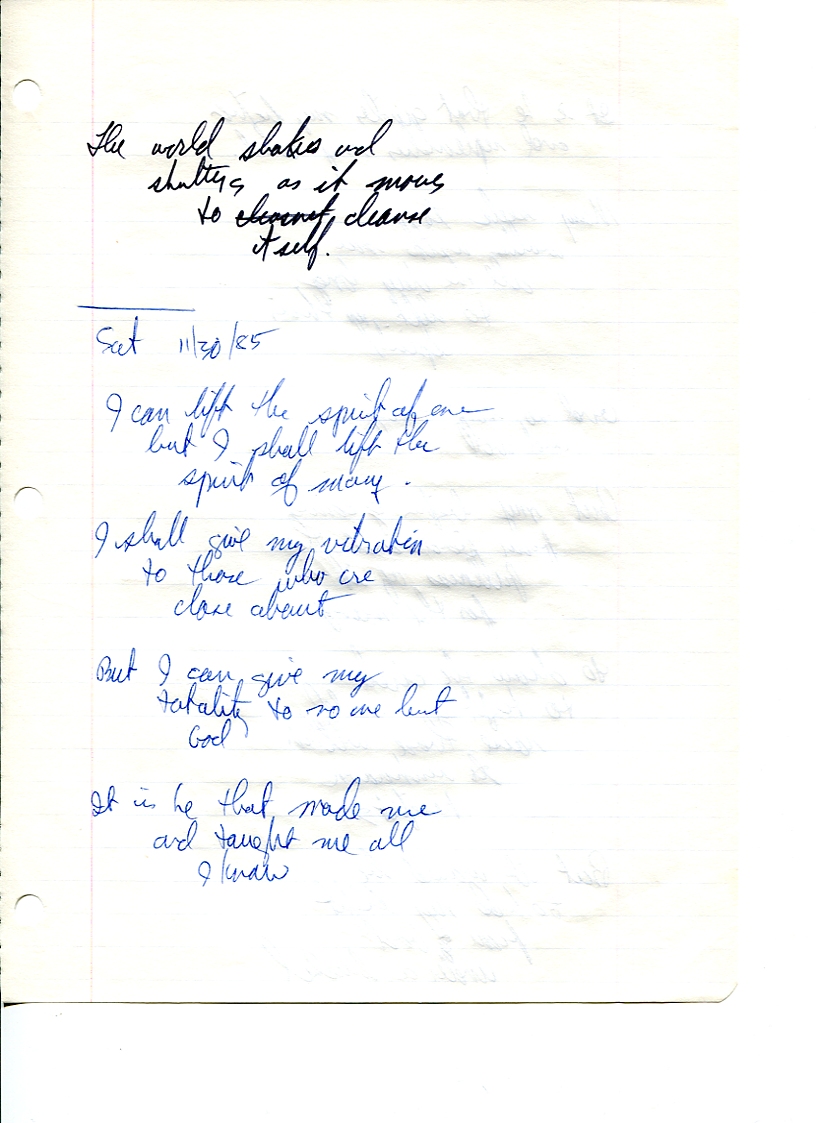 The world shakes and
shutters as it moves
to cleanse
itself.
Sat 11/30/85
I can lift the spirit of one
but I shall lift the
spirit of many.
I shall give my vibration
to those who are
close about
But I can give my
totality to no one but
God
It is he that made me
and taught me all
I know